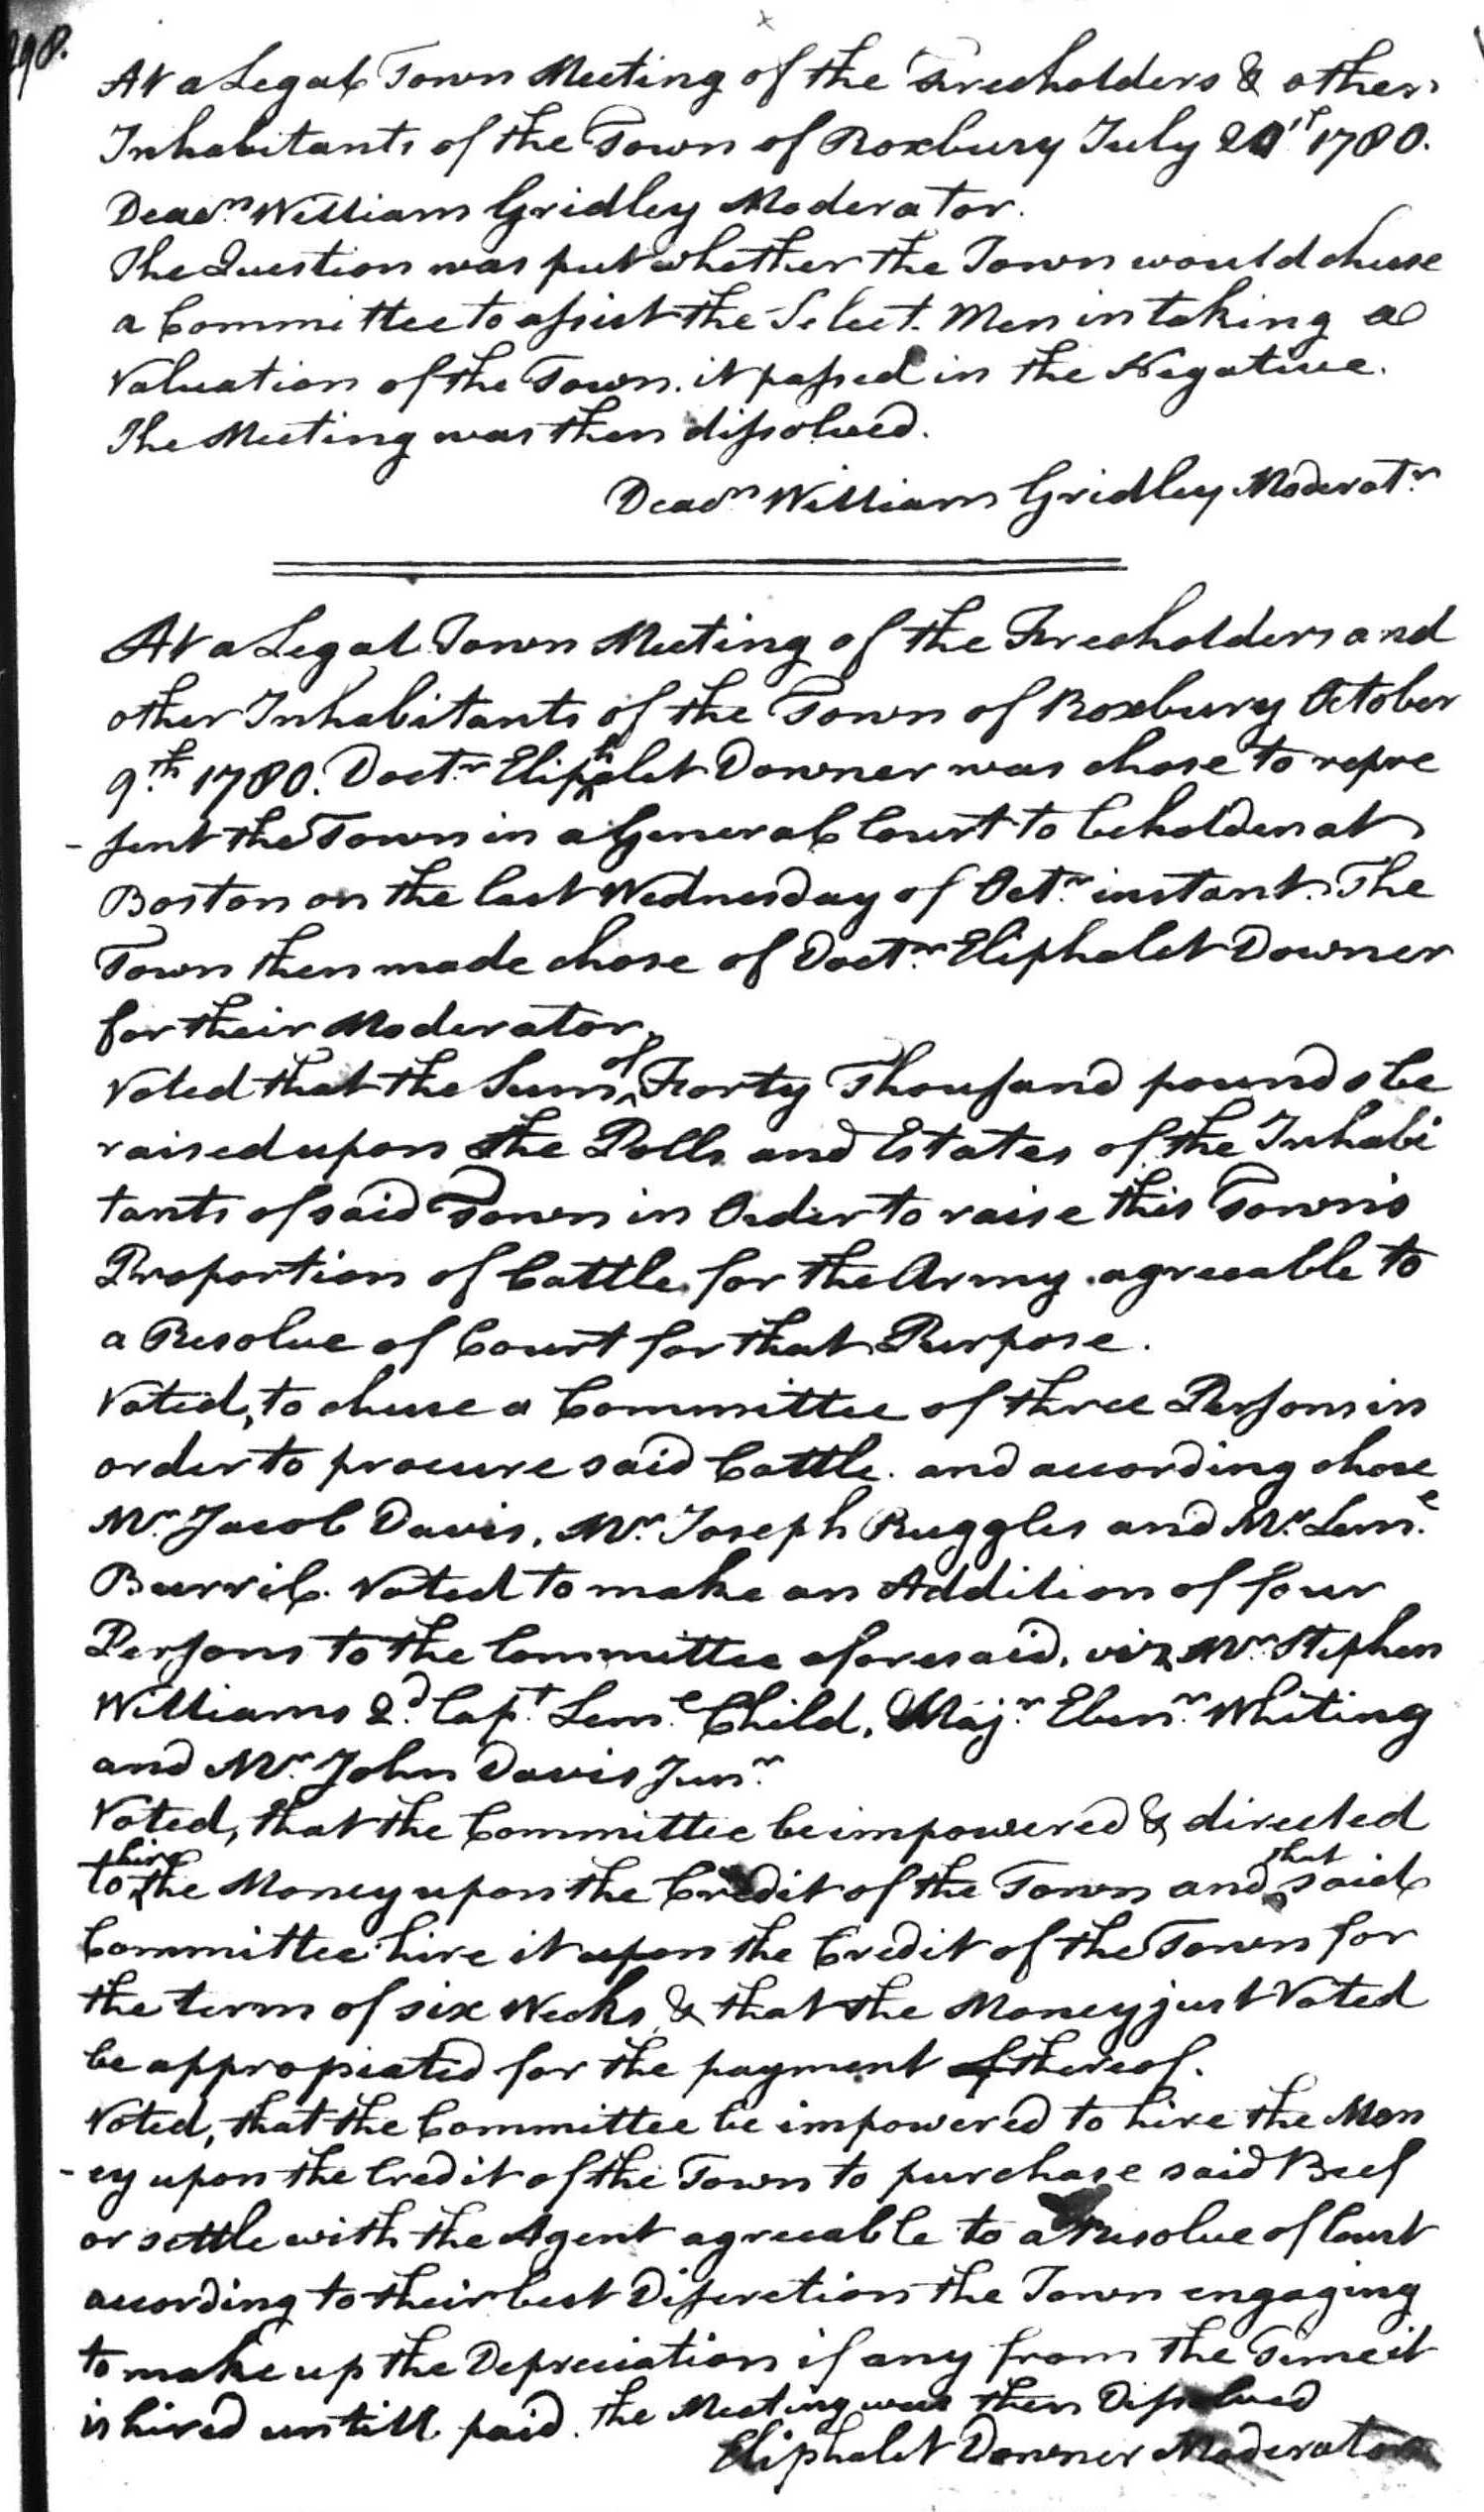 298.
At a Legal Town Meeting of the Freeholders & other
Inhabitants of the Town of Roxbury July 21st 1780.
Deacn. William Gridley Moderator.
The Question was put whether the Town would chuse
a Committee to assist the Select Men in taking a
Valuation of the Town. it passed in the Negative.
The Meeting was then dissolved.
Deacn William Gridley Moderatr
At a Legal Town Meeting of the Freeholders and
other Inhabitants of the Town of Roxbury October
9th 1780. Doctr Eliphalet Downer was chose to repre
-sent the Town in a General Court to be holden at
Boston on the last Wednesday of Octr instant. The
Town then made chose of Doctr Eliphalet Downer
for their Moderator.
Voted that the Sum of Forty Thousand pounds be
raised upon the Polls and Estates of the Inhabi
tants of said Town in Order to raise this Town's
Proportion of Cattle for the Army agreeable to
a Resolve of Court for that Purpose.
Voted, to chuse a Committee of three Persons in
order to procure said Cattle. and according chose
Mr. Jacob Davis, Mr. Joseph Ruggles and Mr. Leme.
Burril. Voted to make an Addition of four
Persons to the Committee aforesaid, viz Mr. Stephen
Williams 2d. Capt. Leme. Child, Majr. Ebenr. Whiting
and Mr. John Davis Junr.
Voted, that the Committee be impowered & directed
to hire the Money upon the Credit of the Town and that said
Committee hire it upon the Credit of the Town for
the term of six Weeks, & that the Money just Voted
be appropiated for the payment thereof.
Voted, that the Committee be impowered to hire the Mon
-ey upon the Credit of the Town to purchase said Beef
or settle with the Agent agreeable to a Resolve of Court
according to their best Discretion the Town engaging
to make up the Depreciation if any from the Time it
is hired untill paid. the Meeting was then Dissolved
Eliphalet Downer Moderator